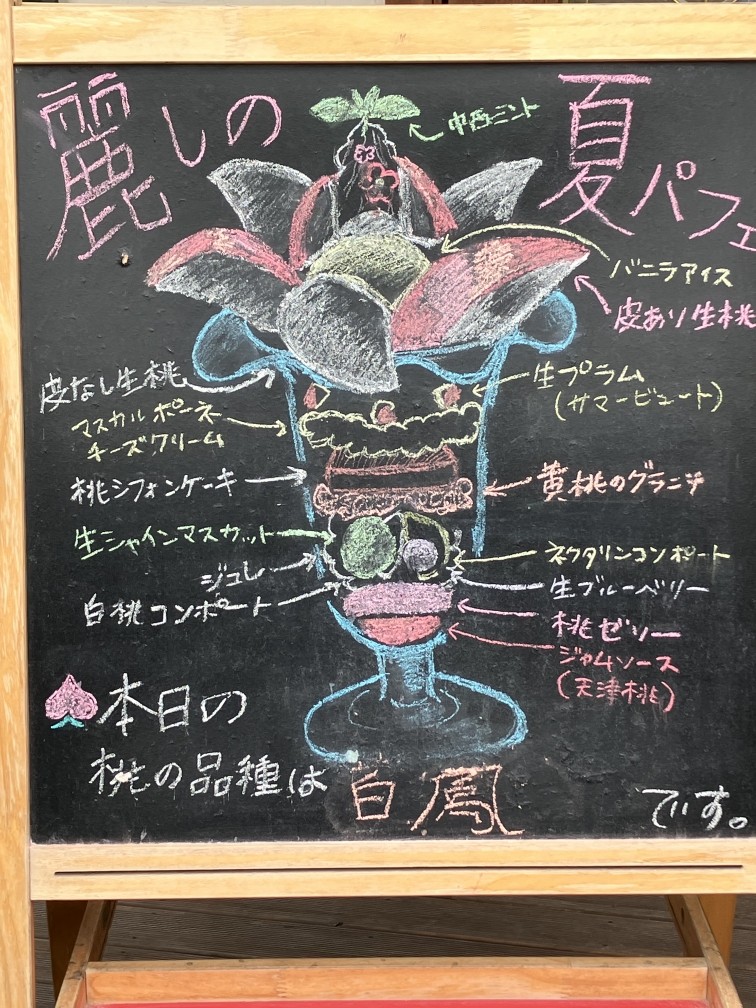 麗しの
夏パフェ
中西ミント
バニラアイス
皮あり生桃
皮なし生桃
生プラム
(サマービュート)
マスカルポーネ
チーズクリーム
桃シフォンケーキ
黄桃のグラニテ
生シャインマスカット
ネクタリンコンポート
ジュレ
生ブルーベリー
白桃コンポート
桃ゼリー
ジャムソース
(天津桃)
本日の
桃の品種は 白鳳 でいす。